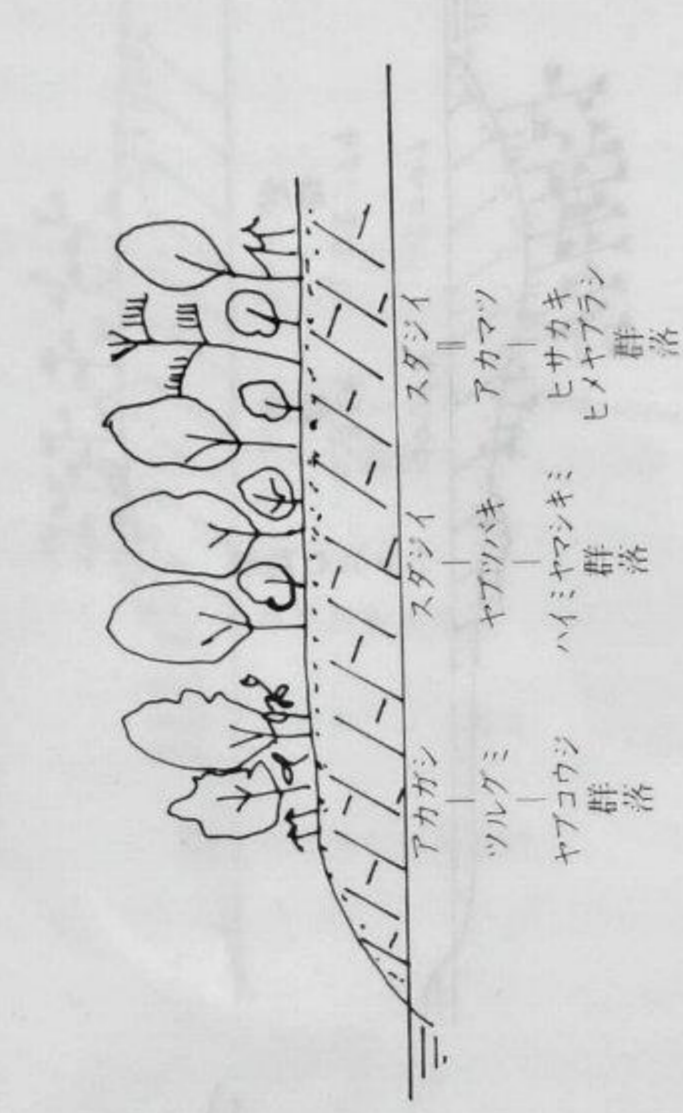 アカガシ
ツルグミ
ヤブコウジ
群
落
スダジイ
ヤブツバキ
ハイミヤマシキミ
群
落
スダジイ
アカマツ
ヒサカキ
ヒメヤブラシ
群
落